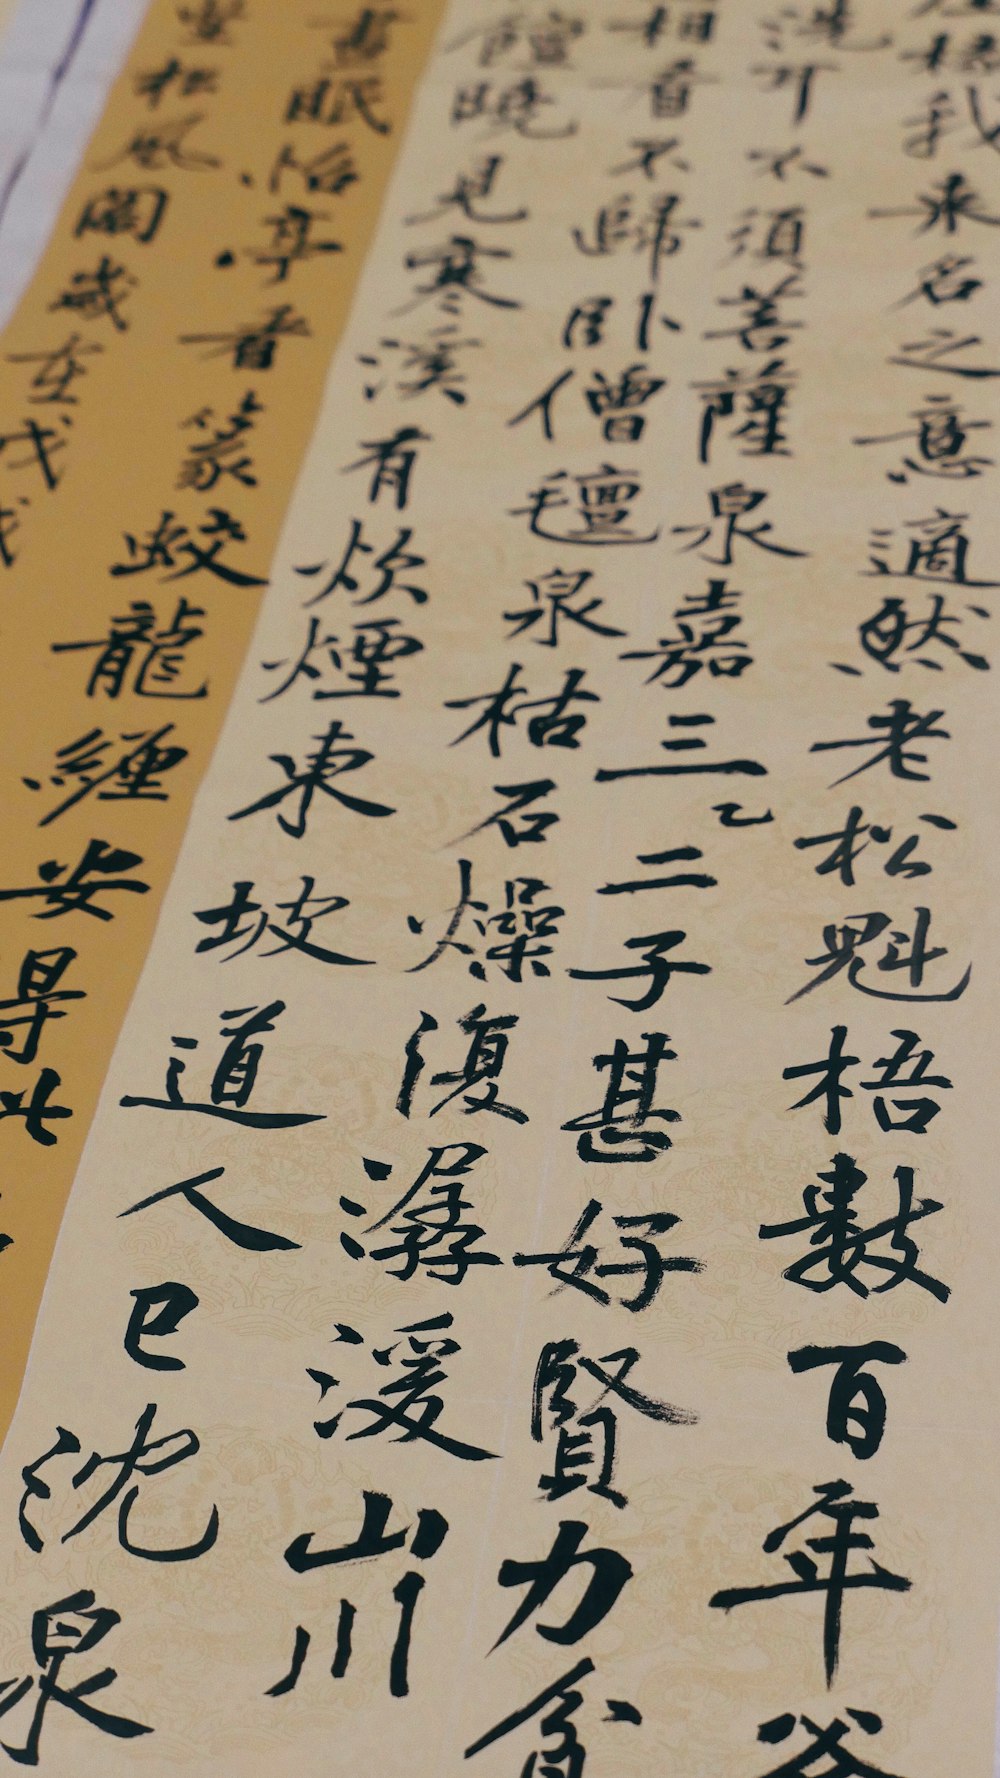 椽我來名之意適然老松魁梧數百年斧
洗耳不須菩薩泉嘉三二子甚好賢力貧
相看不歸臥僧氈泉枯石燥復潺湲山川
饘曉見寒溪有炊煙東坡道人已沈泉
晝眠怡亭看篆蛟龍纏安得此
坐松風閣歲在戊戌